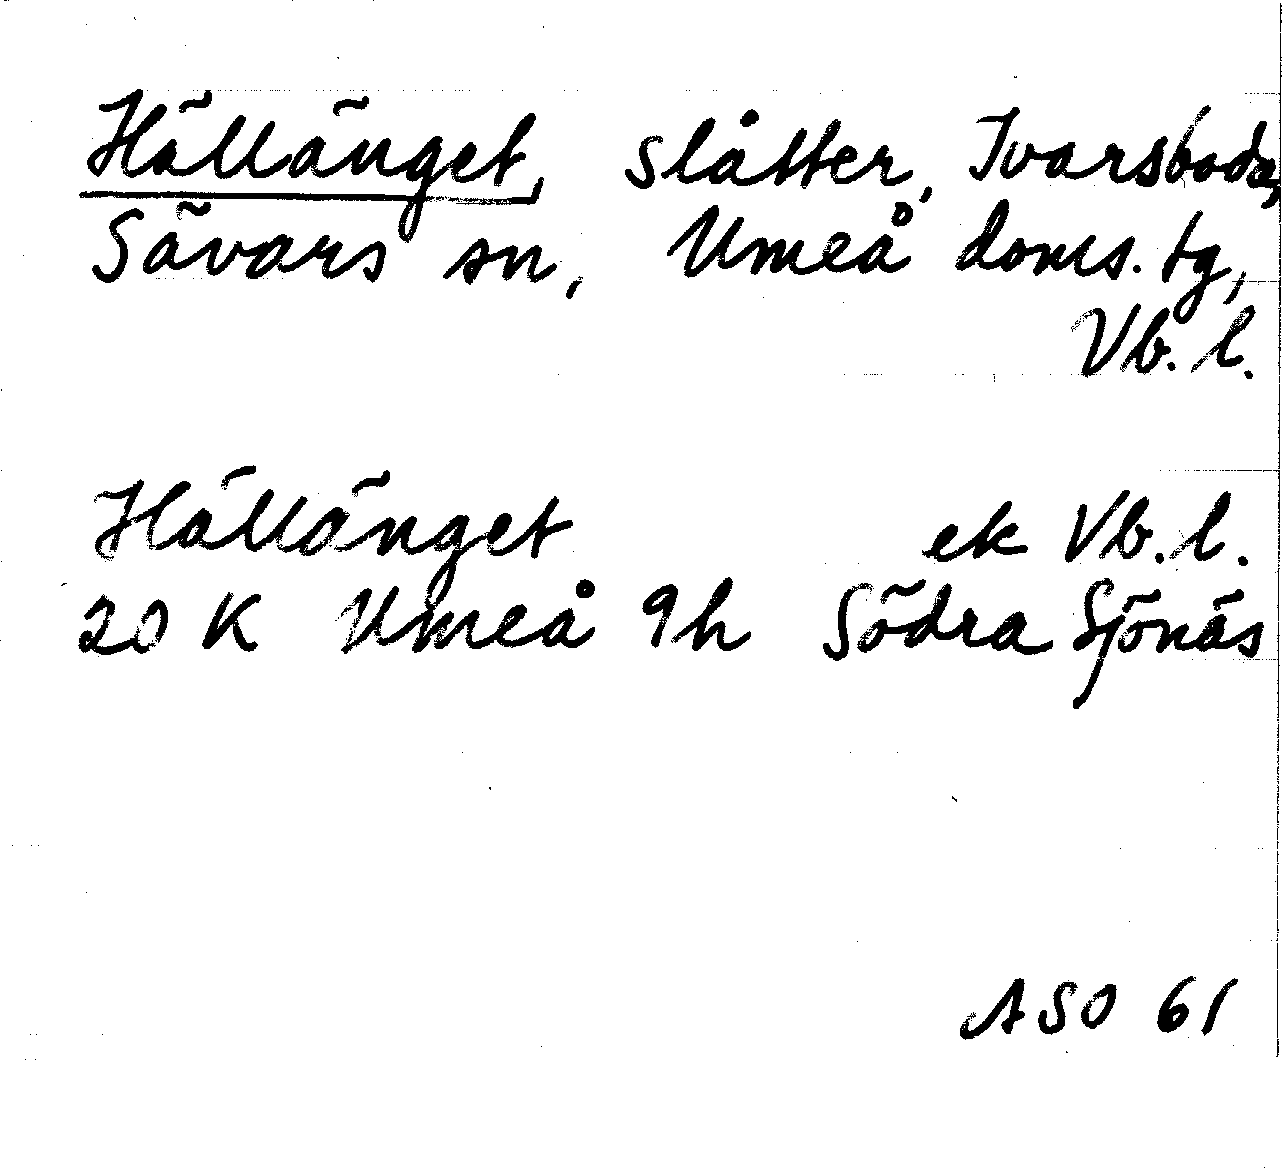 Hällänget, slåtter, Ivarsboda,
Sävars sn, Umeå doms. tg,
Vb. l.
Hällänget ek Vb. l.
20 K Umeå 9h Södra Sjönäs
ASO 61